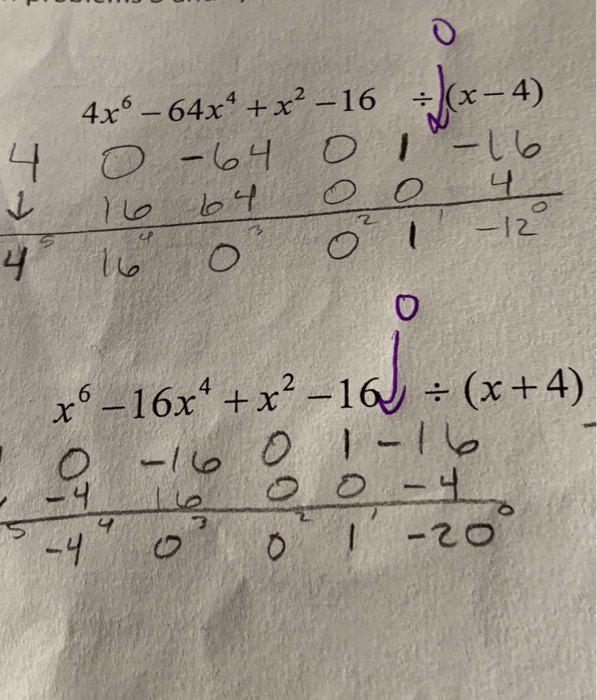 0
4x⁶ − 64x⁴ + x² − 16 ÷ (x − 4)
4 0 -64 0 1 -16
↓ 16 64 0 0 4
4⁵ 16⁴ 0³ 0² 1¹ -12⁰
0
x⁶ − 16x⁴ + x² − 16 ÷ (x + 4)
0 -16 0 1 -16
-4 16 0 0 -4
5 -4⁴ 0³ 0² 1¹ -20⁰